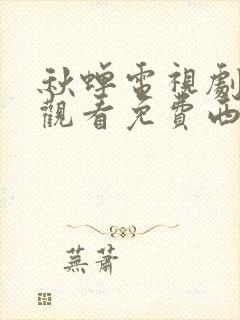 秋蟬電視劇
觀看免費西
蕪蕭